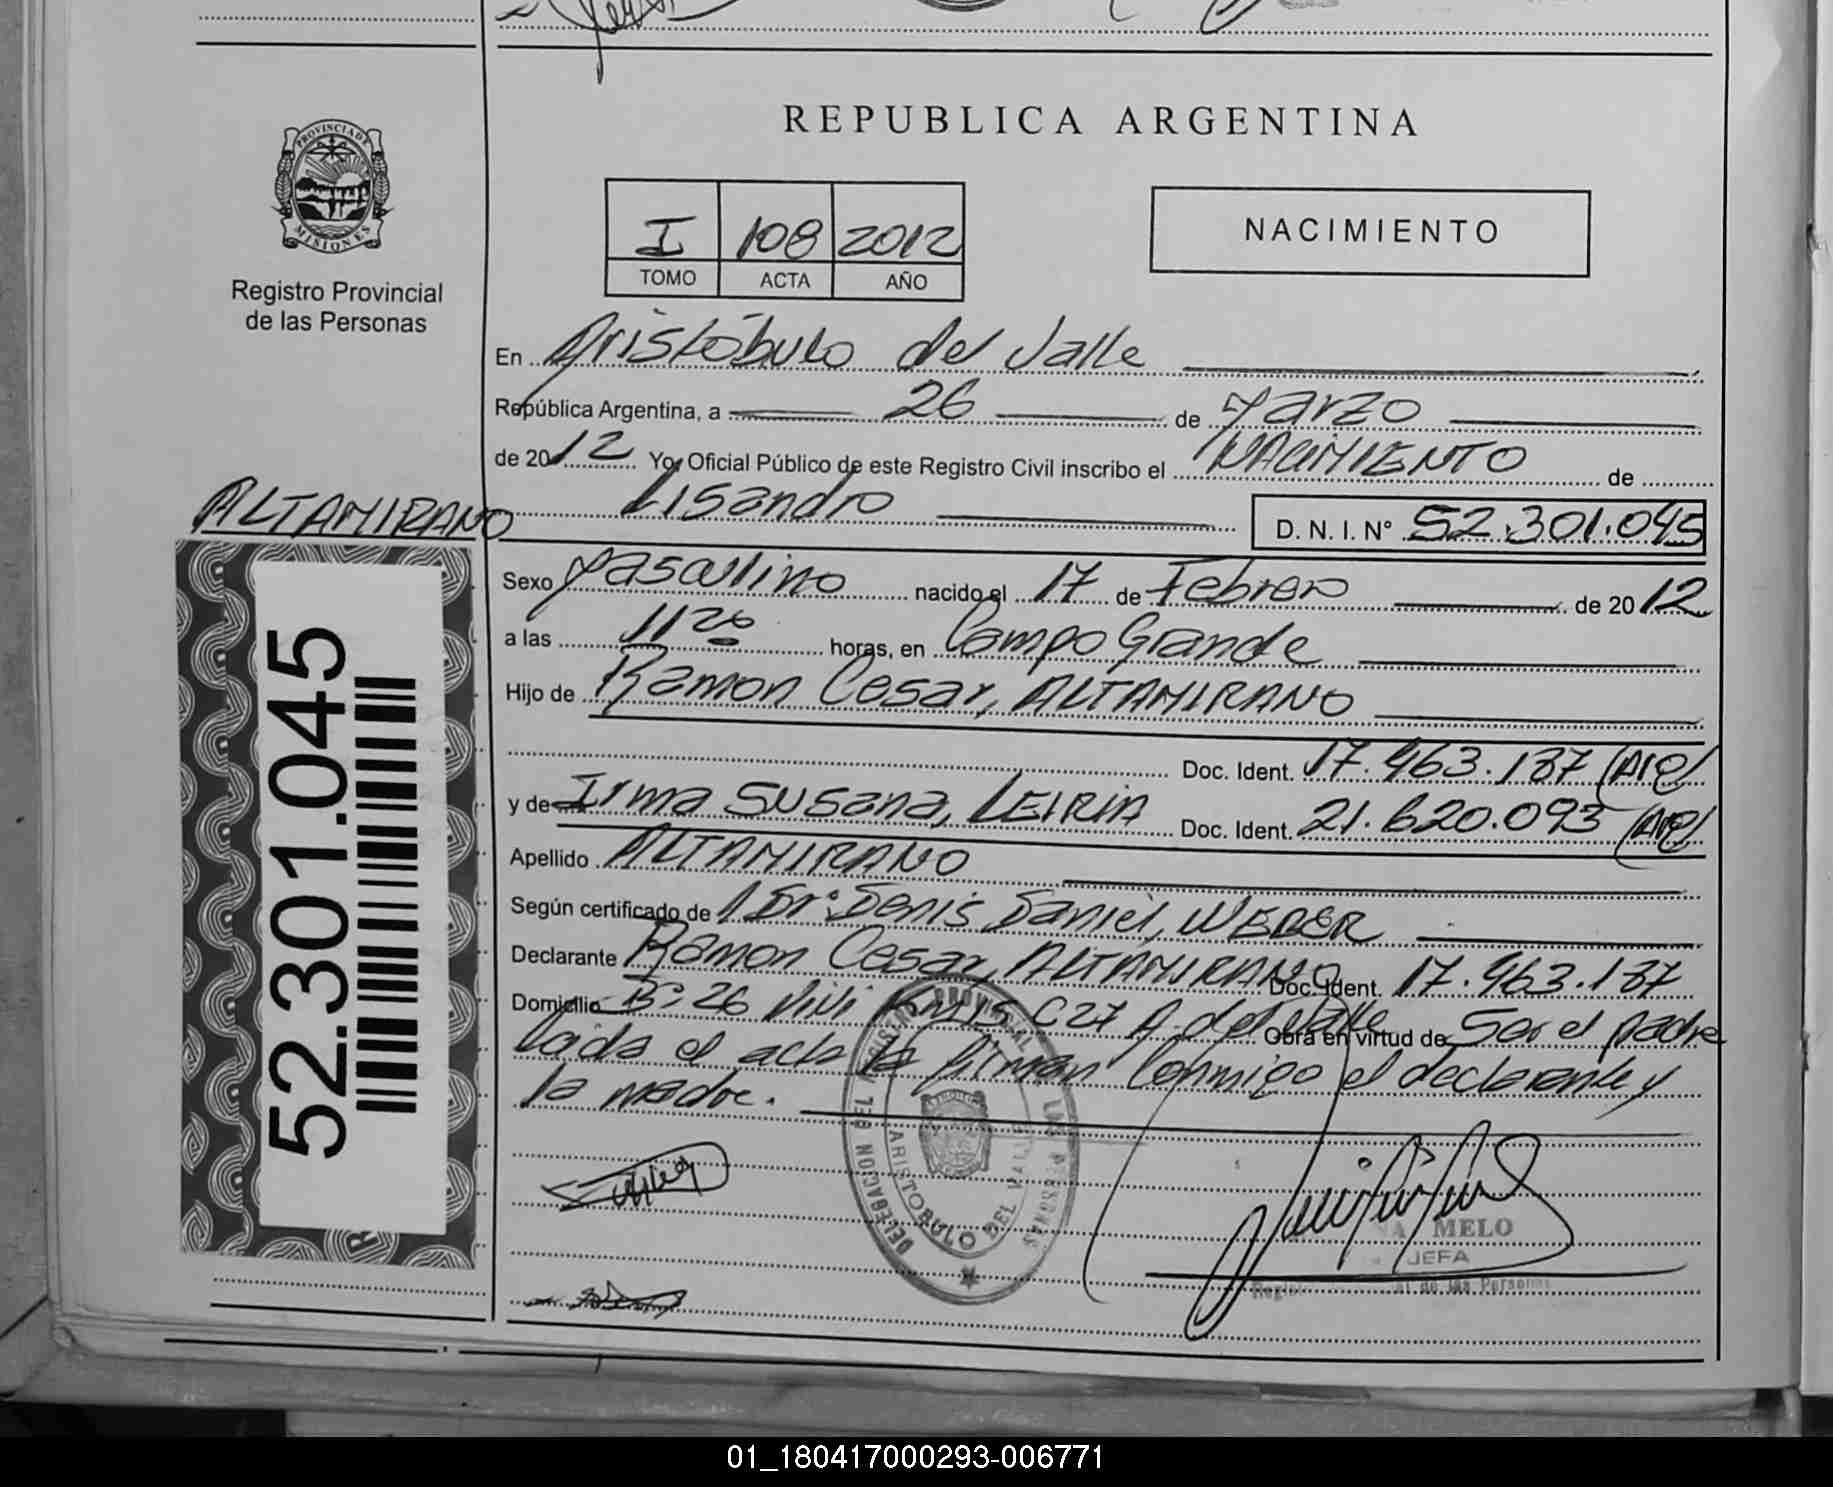 REPUBLICA ARGENTINA
PROVINCIA DE
MISIONES
Registro Provincial
de las Personas
I 108 2012
TOMO ACTA AÑO
NACIMIENTO
En Aristóbulo del Valle
República Argentina, a 26 de Marzo
de 2012 Yo, Oficial Público de este Registro Civil inscribo el NACIMIENTO de
ALTAMIRANO Lisandro D. N. I. N° 52.301.045
Sexo Masculino nacido el 17 de Febrero de 2012
a las 11 20 horas, en Campo Grande
Hijo de Ramon Cesar, ALTAMIRANO
Doc. Ident. 17.463.187
y de Irma Susana, LEIRIA Doc. Ident. 21.620.093
Apellido ALTAMIRANO
Según certificado de Dr. Denis Daniel, WEBER
Declarante Ramon Cesar, ALTAMIRANO Doc. Ident. 17.463.187
Domicilio B° 26 C 27 A. del Valle Obra en virtud de Ser el padre
Leida el acta la firman Conmigo el declarante y
la madre.
52.301.045
DELEGACION DEL REGISTRO PROVINCIAL LAS PERSONAS
ARISTOBULO DEL VALLE
MELO
JEFA
de las Personas
01_180417000293-006771